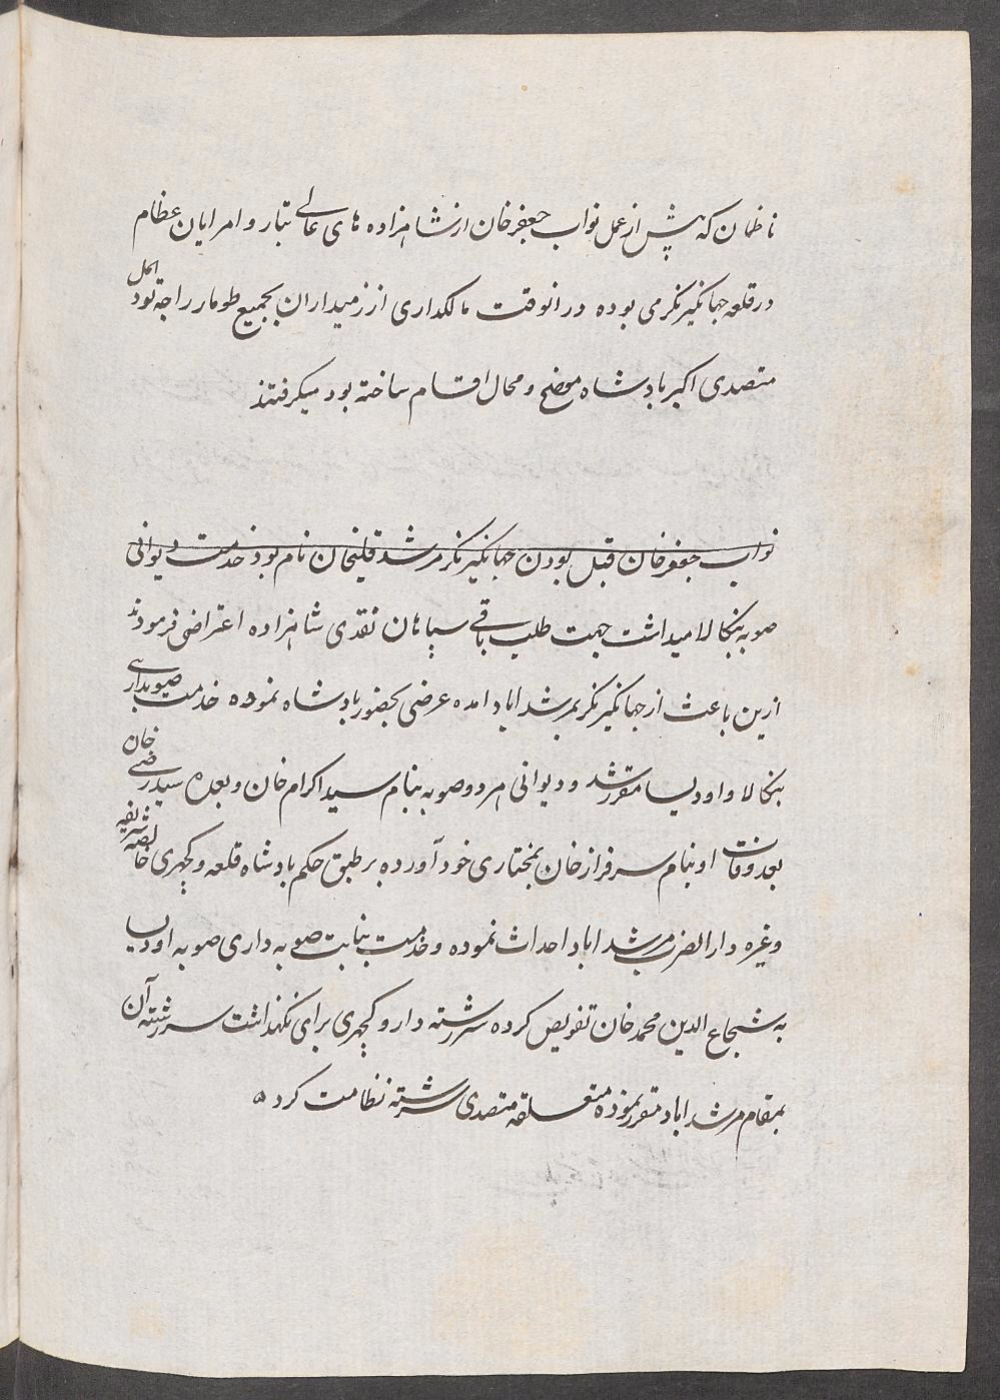 ناظمان که پیش از عمل نواب جعفرخان از شاهزاده های عالی تبار و امرایان عظام
در قلعه جهانگیرنگر می بوده درانوقت مالکذاری از زمیداران بجمیع طومار راجه تودرمل
متصدی اکبر بادشاه موضع و محال اقسام ساخته بود میکرفتند
نواب جعفرخان قبل بودن جهانگیرنگر مرشد قلیخان نام بود خدمت دیوانی
صوبه بنکالا میداشت جهت طلب باقی سپاهان نقدی شاهزاده اعتراضی فرمودند
ازین باعث از جهانگیرنگر بمرشداباد امده عرضی بحضور بادشاه نموده خدمت صوبداری
بنکالا و اودیسا مقرر شد و دیوانی هردو صوبه بنام سید اکرام خان و بعده سید رضی خان
بعد وفات او بنام سرفراز خان بمختاری خود آورده بر طبق حکم بادشاه قلعه و کچهری خالصه شریفه
وغیره دارالضرب مرشداباد احداث نموده و خدمت نیابت صوبه داری صوبه اودیسا
به شجاع الدین محمد خان تفویض کرده سررشته دار و کچهری برای نکهداشت سررشته آن
بمقام مرشداباد مقرر نموده متعلقه متصدی سررشته نظامت کرد ۵